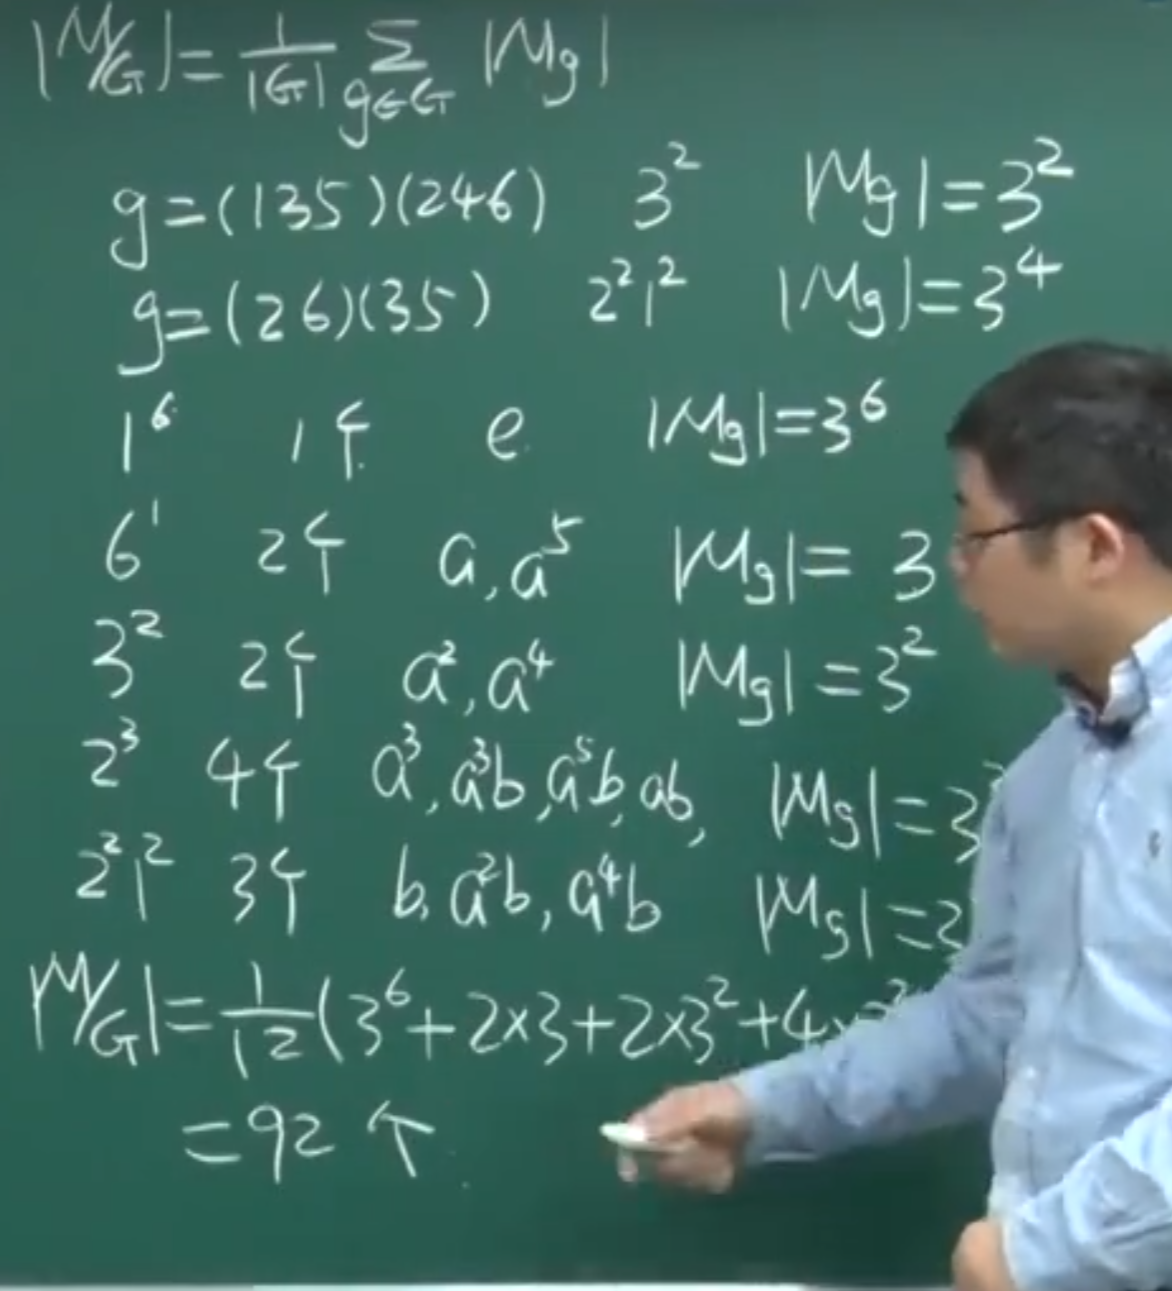 |M/G| = 1/|G| Σ_{g∈G} |Mg|
g=(135)(246) 3² |Mg|=3²
g=(26)(35) 2²1² |Mg|=3⁴
1⁶ 1个 e |Mg|=3⁶
6¹ 2个 a,a⁵ |Mg|= 3
3² 2个 a²,a⁴ |Mg|=3²
2³ 4个 a³,a³b,a⁵b,ab, |Mg|=3
2²1² 3个 b,a²b,a⁴b |Mg|=
|M/G|=1/12(3⁶+2×3+2×3²+4×
=92个